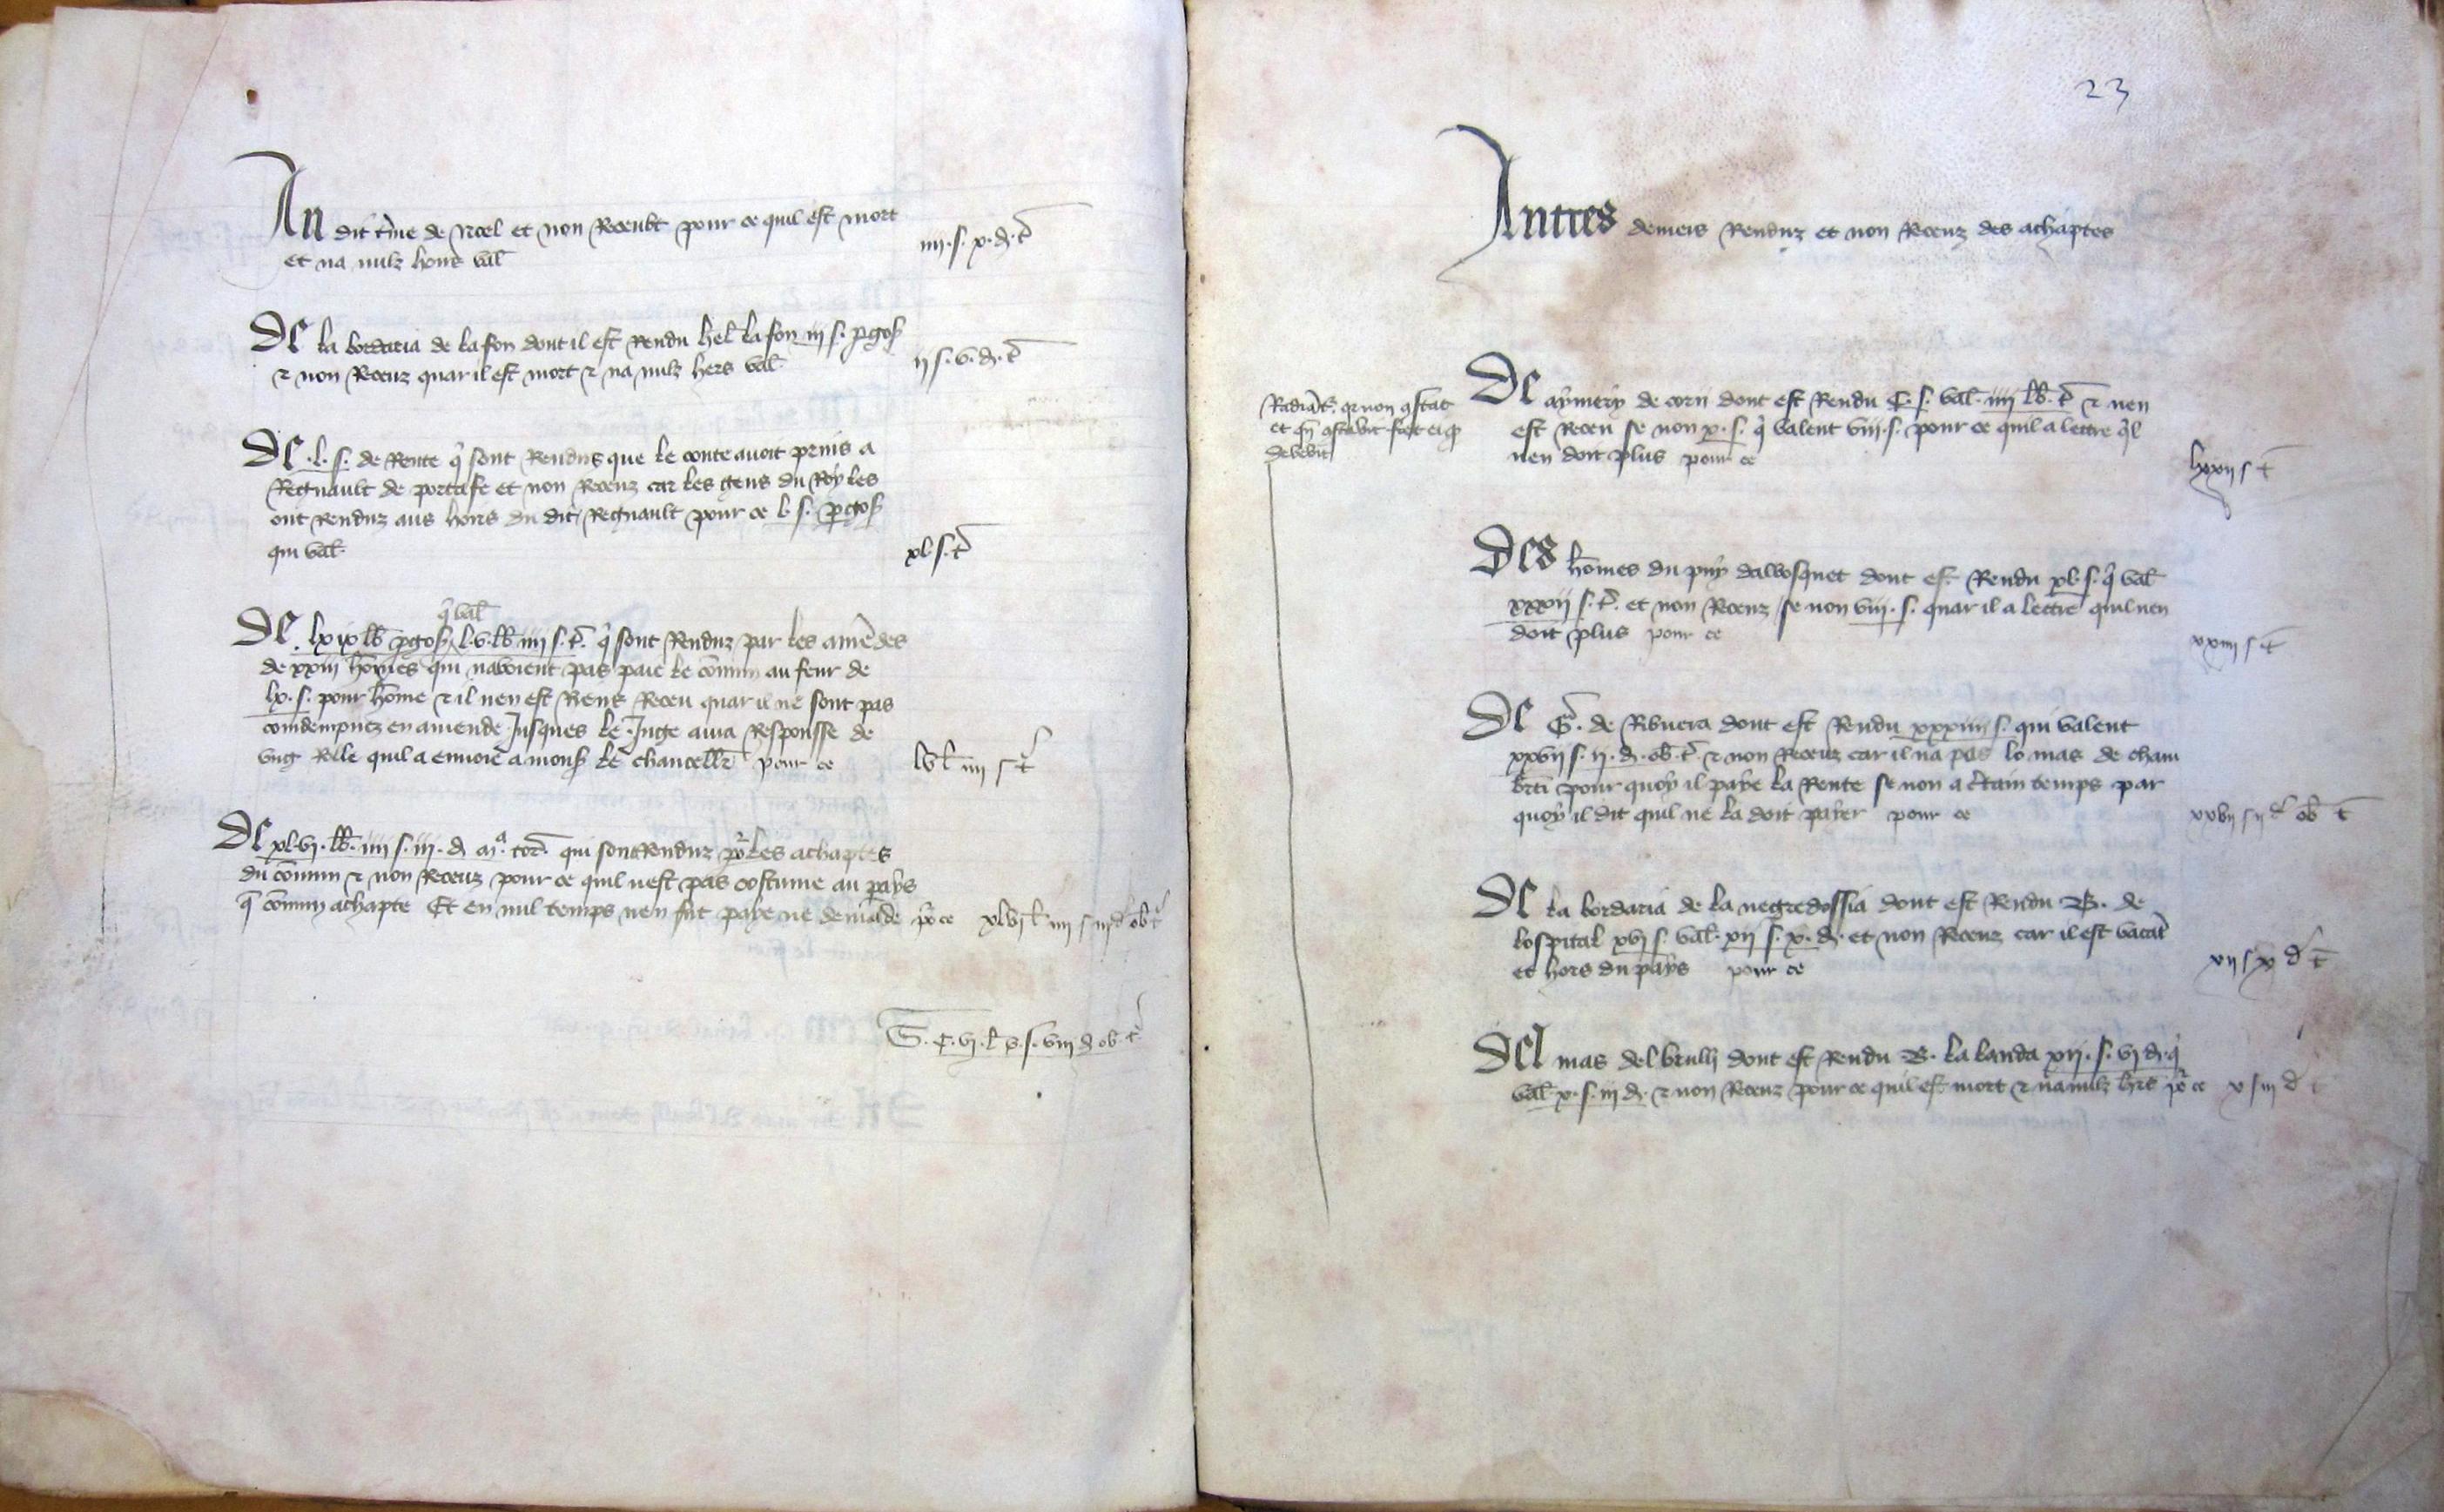 An dit t'me de Noel et non Receubt pour ce quil est mort
et na nulz hons val
iiii. s. x. d. t
De la bordaria de la fon dont il est Rendu hel la fon iii s. pgos
& non Receuz quar il est mort & na nulz hers val.
ii s. v. d. t
De .l. s. de Rente q sont Rendus que le conte avoit prins a
Regnault de portafe et non Receuz car les gens du Roy les
ont Renduz aus hoirs du dit Regnault pour ce l. s. pgos
qui val.
xl. s. t
q val
De . lxix lb pgos, l.v. lb iiii s. t. q sont Renduz par les amedes
de xxiii homes qui navoient pas paie le comun au feur de
lx. s. pour home & il nen est Riens Receu quar il ne sont pas
condempnez en amende Jusques le Juge aura Responsse de
ung Rolle quil a envoie a mons le chancellr pour ce
lv l iiii s t
De xl.vi. lb. iiii s. iii. d ma. tor. qui sont Renduz por les achaptes
du comun & non Receuz pour ce quil nest pas costume au pays
q comun achapte Et en nul temps nen fut paye ne demade po ce xlvi l iiii s iii d ob t
S. C. vi. l v. s. viii d ob t
23
Autres deniers Renduz et non Receuz des achaptes
Radiat. qr non constat
et qn constabit fiet ei qp
debebit
De aymery de corn dont est Rendu C. s. val. iiii lb. t & nen
est Receu se non x. s. q valent viii. s. pour ce quil a lettre ql
nen doit plus pour ce
lxxii s t
Des homes du puy dalbosquet dont est Rendu xl. s. q val
xxxii s. t. et non Receuz se non viii. s. quar il a lettre quil nen
doit plus pour ce
xxiiii s t
De G. de Ribiera dont est Rendu xxxiiii s. qui valent
xxvii s. ii. d. ob. t & non Receuz car il na pas lo mas de cham
brti pour quoy il paye la Rente se non a ctain temps par
quoy il dit quil ne la doit payer pour ce
xxvii s ii d ob t
De la bordaria de la negredossia dont est Rendu B. de
lospital xvi s. val. xii s. x. d. et non Receuz car il est vacat
et hors du pays pour ce
xii s x d t
Del mas del brulh dont est Rendu B. la landa xii. s. vi d. q
val. x. s. iii d. & non Receuz pour ce quil est mort & na nulz hrs po ce x s iii d t